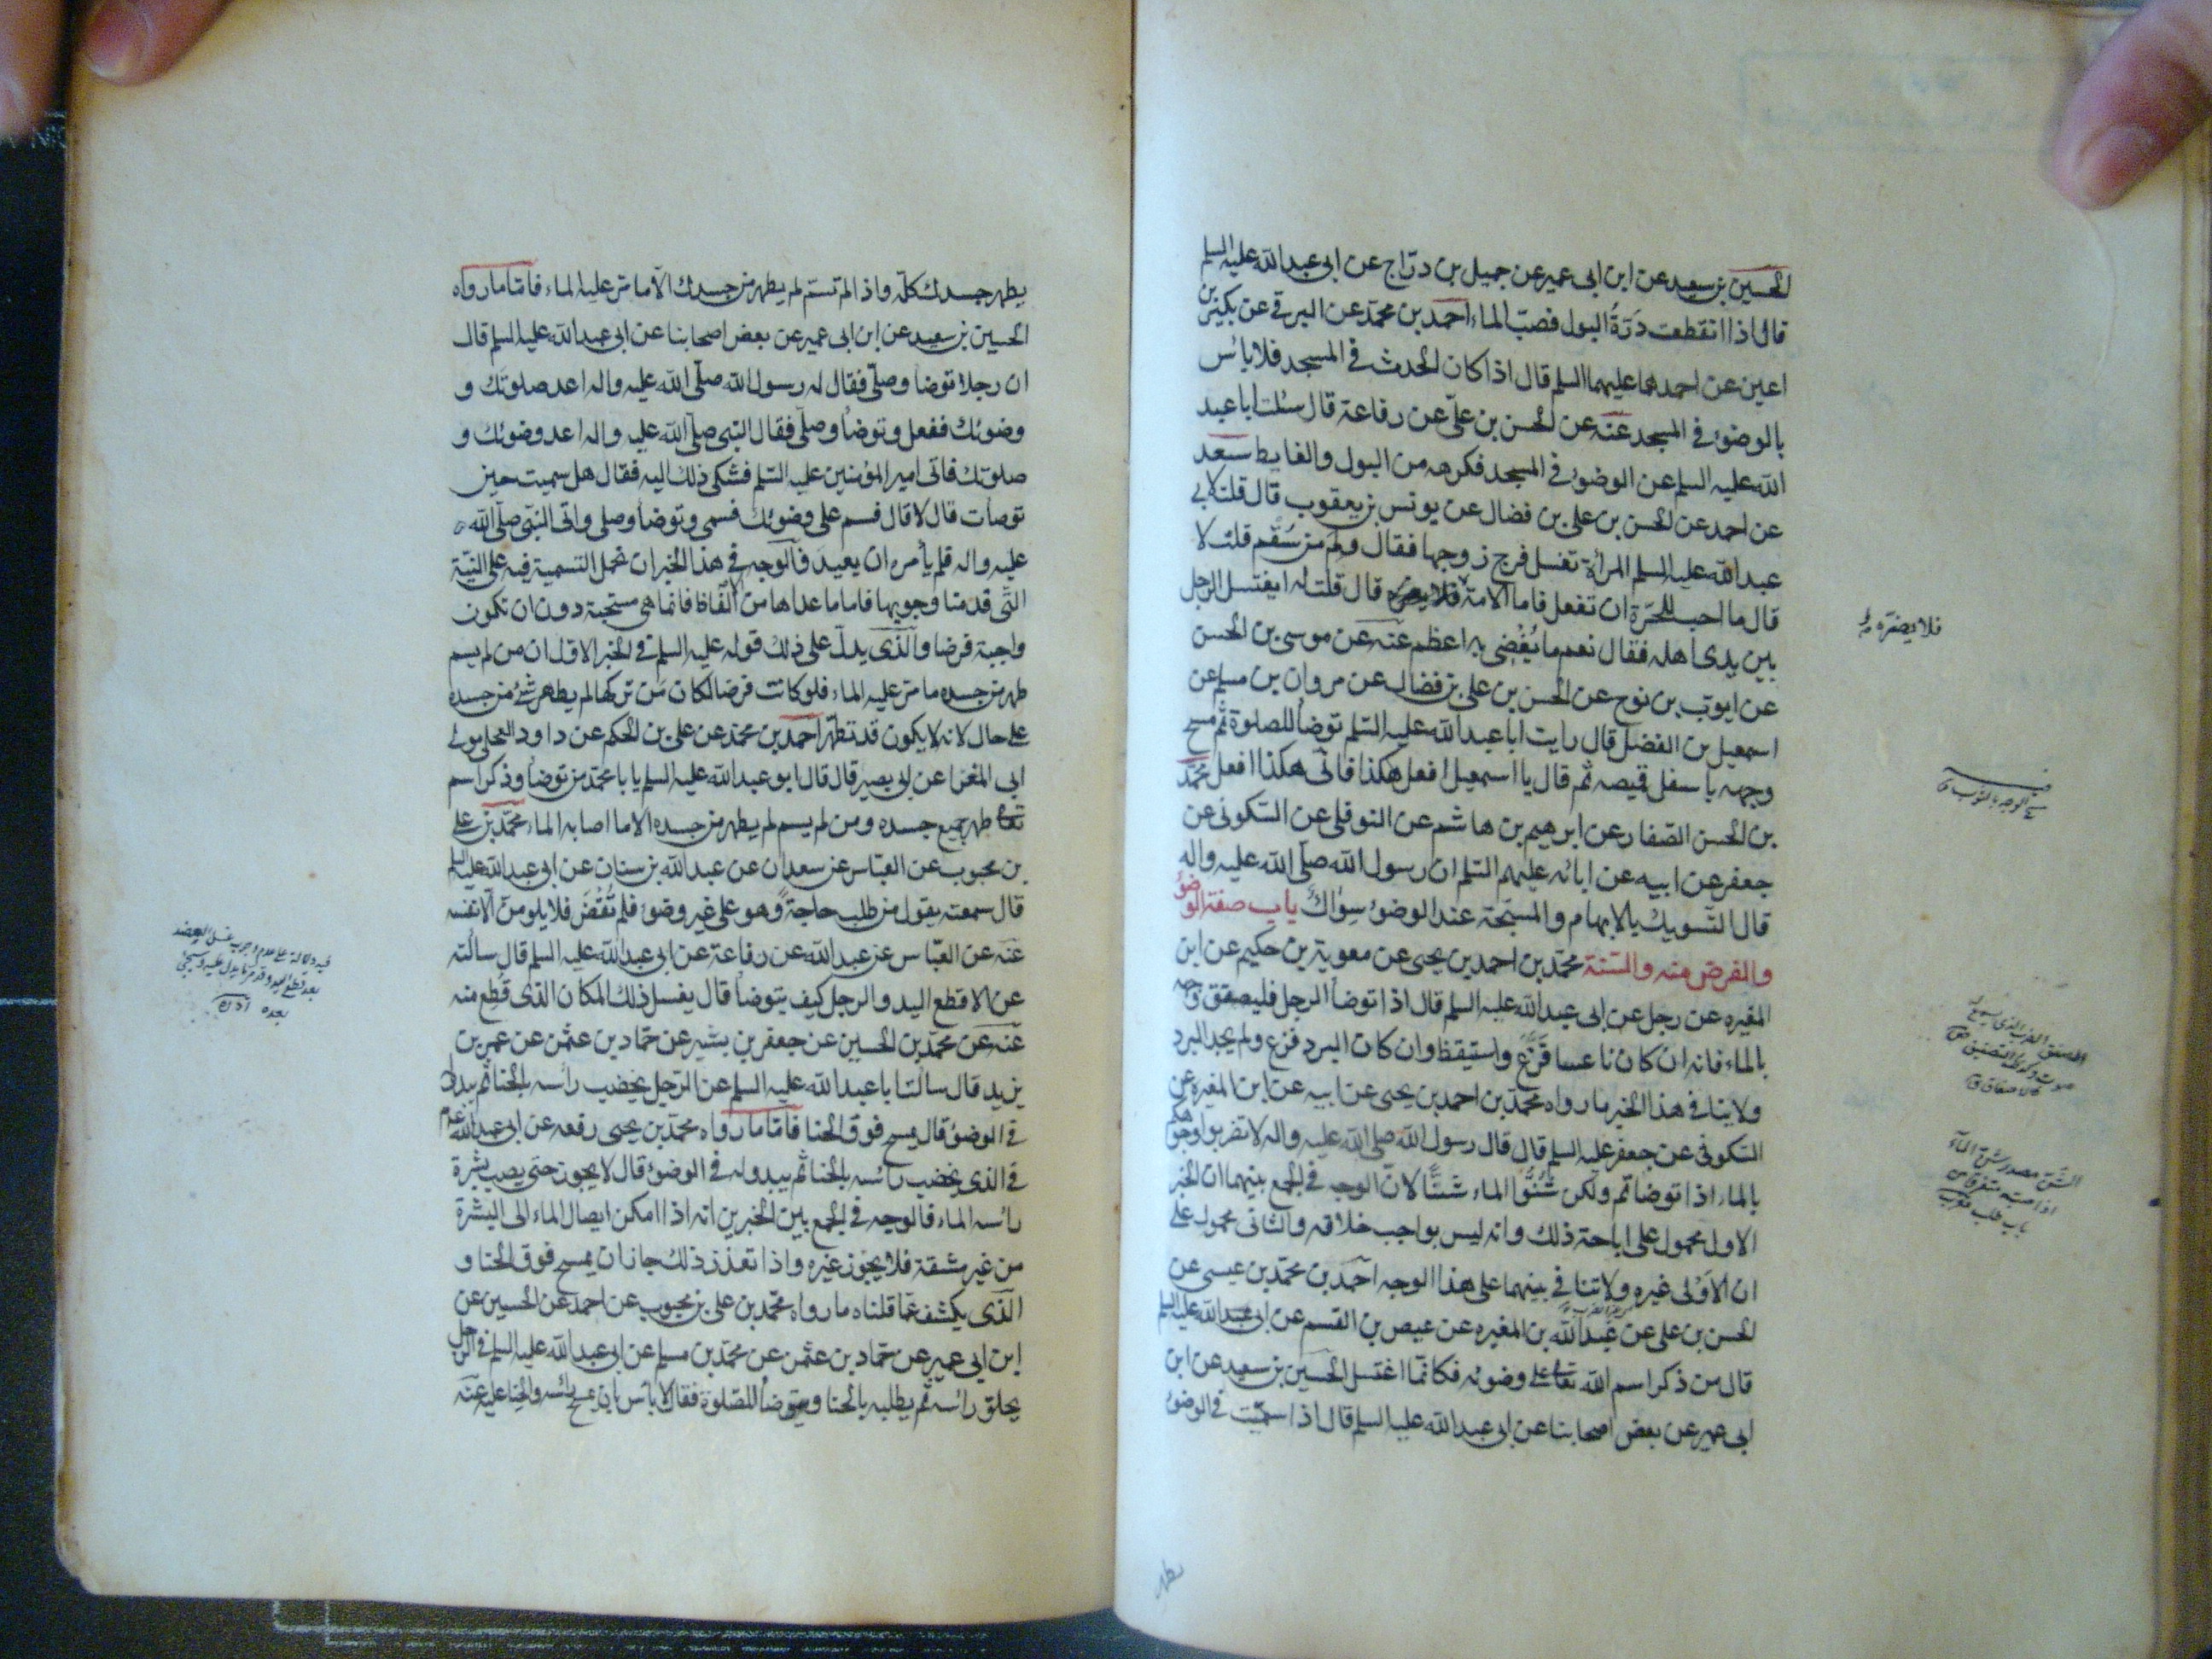 الحسين بن سعيد عن ابن ابى عمير عن جميل بن درّاج عن ابى عبد الله عليه السلم
قال اذا انقطعت دَرّةُ البول فصبّ الماء احمد بن محمّد عن البرقى عن بكير بن
اعين عن احدهما عليهما السلم قال اذا كان الحدث فى المسجد فلا بأس
بالوضوء فى المسجد عنه عن الحسن بن علىّ عن رفاعة قال سئلت ابا عبد
الله عليه السلم عن الوضوء فى المسجد فكرهه من البول والغايط سعد
عن احمد عن الحسن بن على بن فضال عن يونس بن يعقوب قال قلت لابى
عبد الله عليه السلم المرأة تغسل فرج زوجها فقال ولم من سُقْمٍ قلت لا
قال ما احب للحرّة ان تفعل فاما الامة فلا يضره قال قلت له ايغتسل الرجل
بين يدى اهله فقال نعم ما يُفْضِى به اعظم عنه عن موسى بن الحسن
عن ايوب بن نوح عن الحسن بن على بن فضال عن مروان بن مسلم عن
اسمعيل بن الفضل قال رايت ابا عبد الله عليه السّلم توضأ للصلوة ثم مسح
وجهه باسفل قميصه ثم قال يا اسمعيل افعل هكذا فانّى هكذا افعل محمّد
بن الحسن الصّفار عن ابرهيم بن هاشم عن النوفلى عن السّكونى عن
جعفر عن ابيه عن ابائه عليهم السّلم ان رسول الله صلّى الله عليه واله
قال التّسويك بالابهام والمسبّحة عند الوضوء سِواكٌ باب صفة الوضوء
والفرض منه والسّنة محمّد بن احمد بن يحيى عن معوية بن حكيم عن ابن
المغيره عن رجل عن ابى عبد الله عليه السلم قال اذا توضأ الرجل فليصفق وجهه
بالماء فانه ان كان ناعسا فَزِعَ واستيقظ وان كان البرد فزع ولم يجد البرد
ولا ينافى هذا الخبر ما رواه محمّد بن احمد بن يحيى عن ابيه عن ابن المغيره عن
السّكونى عن جعفر عليه السلم قال قال رسول الله صلى الله عليه واله لا تضربوا وجوهكم
بالماء اذا توضاتم ولكن شُنُّوا الماء شَنًّا لانّ الوجه فى الجمع بينهما ان الخبر
الاول محمول على اباحة ذلك وانه ليس بواجب خلافه والثانى محمول على
ان الاَوْلى غيره ولا تنافى بينهما على هذا الوجه احمد بن محمّد بن عيسى عن
الحسن بن على عن عبد الله بن المغيره عن عيص بن القسم عن ابى عبد الله عليه السلم
قال من ذكر اسم الله تعالى على وضوئه فكانّما اغتسل الحسين بن سعيد عن ابن
ابى عمير عن بعض اصحابنا عن ابى عبد الله عليه السلم قال اذا سمّيت فى الوضوء
يطهر
فلا يضرّه
الشن مصدر شن الماء
اذا صبه متفرقا من
باب طلب مغرب
يطهر جسدك كلّه واذا لم تسمّ لم يطهر من جسدك الّا ما مرّ عليه الماء فامّا ما رواه
الحسين بن سعيد عن ابن ابى عمير عن بعض اصحابنا عن ابى عبد الله عليه السلم قال
ان رجلا توضا وصلّى فقال له رسول الله صلّى الله عليه واله اعد صلوتك و
وضوئك ففعل وتوضأ وصلّى فقال النّبى صلّى الله عليه واله اعد وضوئك و
صلوتك فاتى امير المؤمنين عليه السّلم فشكى ذلك اليه فقال هل سميت حين
توضأت قال لا قال فسم على وضوئك فسمى وتوضأ وصلى واتى النّبى صلّى الله
عليه واله فلم يأمره ان يعيد فالوجه فى هذا الخبر ان نحمل التسمية فيه على النيّة
التّى قدمنا وجوبها فاما ما عداها من الالفاظ فانما هى مستحبة دون ان تكون
واجبة فرضا والّذى يدلّ على ذلك قوله عليه السلم فى الخبر الاول ان من لم يسم
طهر من جسده ما مرّ عليه الماء فلو كانت فرضا لكان من تركها لم يطهر شئ من جسده
على حال لانه لا يكون قد تطهّر احمد بن محمّد عن على بن الحكم عن داود العجلى مولى
ابى المغرا عن ابى بصير قال قال ابو عبد الله عليه السلم يا با محمّد من توضأ وذكر اسم
تعالى طهر جميع جسده ومن لم يسم لم يطهر من جسده الا ما اصابه الماء محمّد بن على
بن محبوب عن العبّاس عن سعدان عن عبد الله بن سنان عن ابى عبد الله عليه السلم
قال سمعته يقول من طلب حاجةً وهو على غير وضوء فلم تُقْضَ فلا يلومنّ الّا نفسه
عنه عن العبّاس عن عبد الله عن رفاعة عن ابى عبد الله عليه السلم قال سألته
عن الاقطع اليد والرجل كيف يتوضأ قال يغسل ذلك المكان الذى قطع منه
عنه عن محمّد بن الحسين عن جعفر بن بشير عن حمّاد بن عثمن عن عمر بن
يزيد قال سالت ابا عبد الله عليه السلم عن الرّجل يخضب رأسه بالحنا ثم يبدو له
فى الوضوء قال يمسح فوق الحنا فامّا ما رواه محمّد بن يحيى رفعه عن ابى عبد الله عليه السلم
فى الذى يخضب رأسه بالحنا ثم يبدو له فى الوضوء قال لا يجوز حتى يصيب بشرة
رأسه الماء فالوجه فى الجمع بين الخبرين انه اذا امكن ايصال الماء الى البشرة
من غير مشقة فلا يجوز غيره واذا تعذر ذلك جاز ان يمسح فوق الحنا و
الّذى يكشف عمّا قلناه ما رواه محمّد بن على بن محبوب عن احمد عن الحسين عن
ابن ابى عمير عن حمّاد بن عثمن عن محمّد بن مسلم عن ابى عبد الله عليه السلم فى الرجل
يحلق رأسه ثم يطليه بالحنا ويتوضأ للصّلوة فقال لا بأس بان يمسح رأسه والحنا عليه عنه